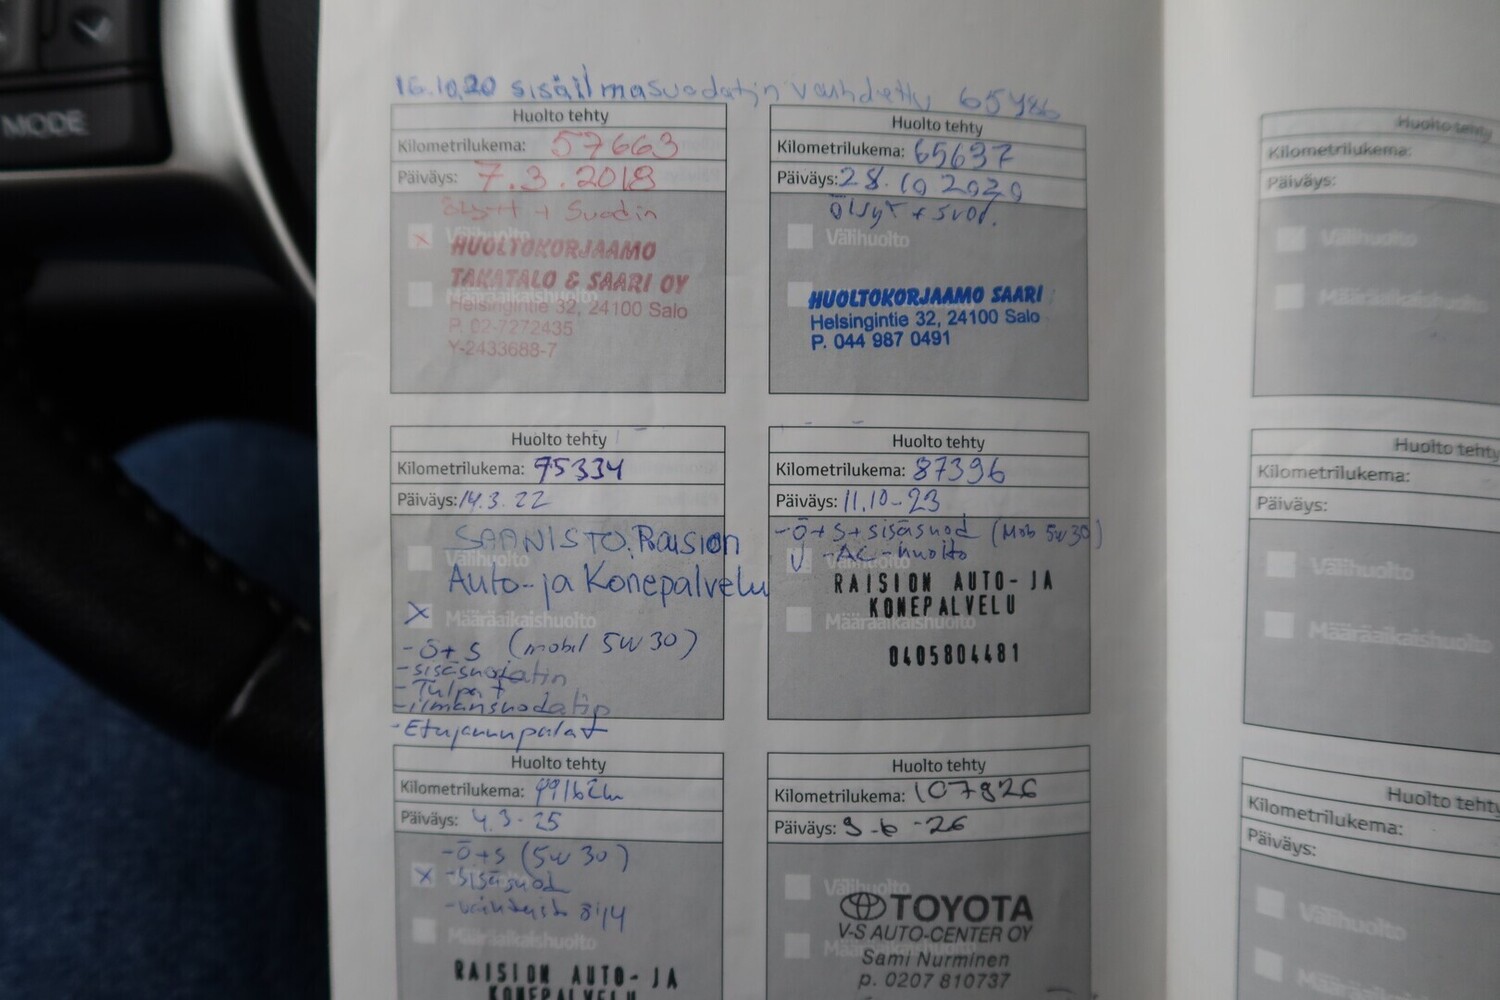 MODE
16.10.20 sisäilmasuodatin vaihdettu 65486
Huolto tehty
Kilometrilukema: 57663
Päiväys: 7.3.2018
Öljyt + Suodin
Välihuolto
HUOLTOKORJAAMO
TAKATALO & SAARI OY
Määräaikaishuolto
Helsingintie 32, 24100 Salo
P. 02-7272435
Y-2433688-7
Huolto tehty
Kilometrilukema: 65637
Päiväys: 28.10 2020
öljyt + suod.
Välihuolto
HUOLTOKORJAAMO SAARI
Helsingintie 32, 24100 Salo
P. 044 987 0491
Huolto tehty
Kilometrilukema: 75334
Päiväys: 14.3.22
SAANISTO, Raision
Välihuolto
Auto- ja Konepalvelu
Määräaikaishuolto
- ö+s (mobil 5w30)
- sisäsuodatin
- Tulpat
- ilmansuodatin
- Etujarrupalat
Huolto tehty
Kilometrilukema: 87396
Päiväys: 11.10-23
- ö+s+sisäsuod (Mob 5w30)
- AC-huolto
Välihuolto
RAISION AUTO- JA
KONEPALVELU
Määräaikaishuolto
0405804481
Huolto tehty
Kilometrilukema: 99162km
Päiväys: 4.3-25
- ö+s (5w30)
- sisäsuod
Määräaikaishuolto
RAISION AUTO- JA
KONEPALVELU
Huolto tehty
Kilometrilukema: 107826
Päiväys: 9-6-26
Välihuolto
TOYOTA
V-S AUTO-CENTER OY
Määräaikaishuolto
Sami Nurminen
p. 0207 810737
Huolto tehty
Kilometrilukema:
Päiväys:
Välihuolto
Määräaikaishuolto
Huolto tehty
Kilometrilukema:
Päiväys:
Välihuolto
Määräaikaishuolto
Huolto tehty
Kilometrilukema:
Päiväys:
Välihuolto
Määräaikaishuolto